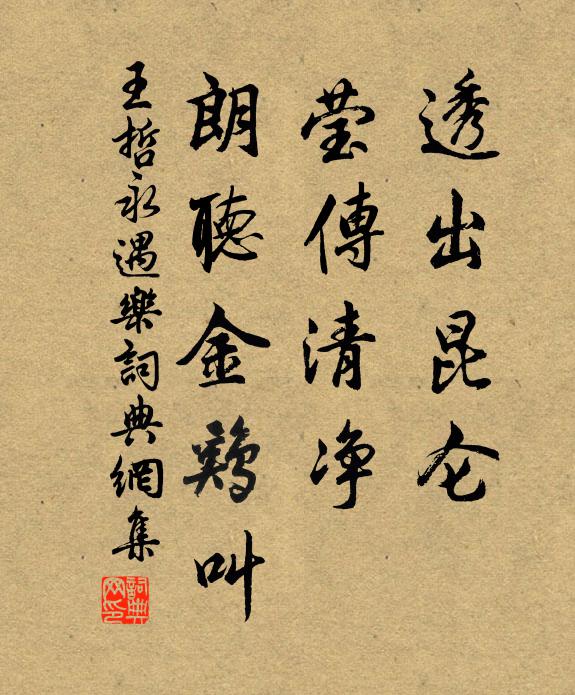 透出昆仑
莹傳清净
朗聽金鷄叫
王哲永遇樂詞典網集
詞典网印